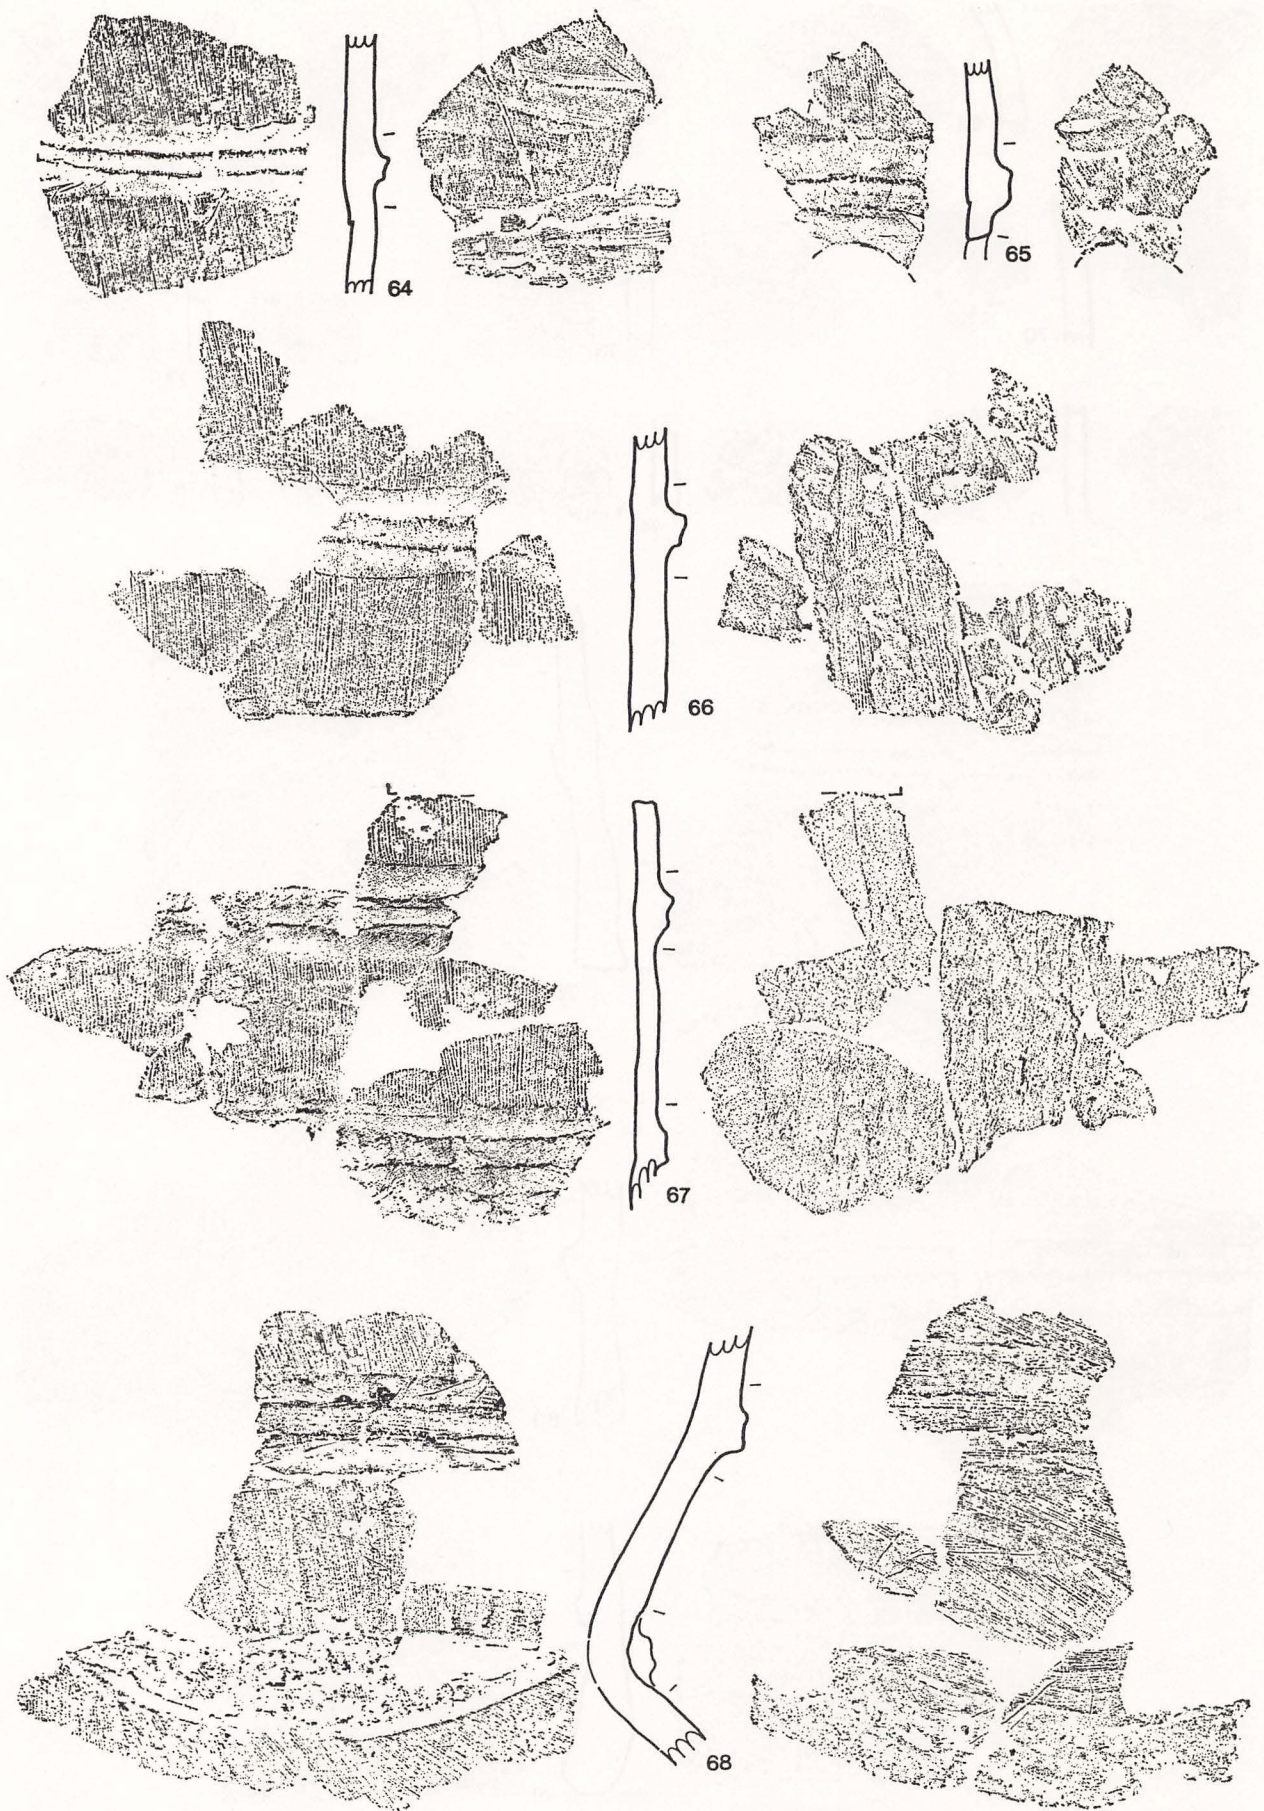 64
65
66
67
68